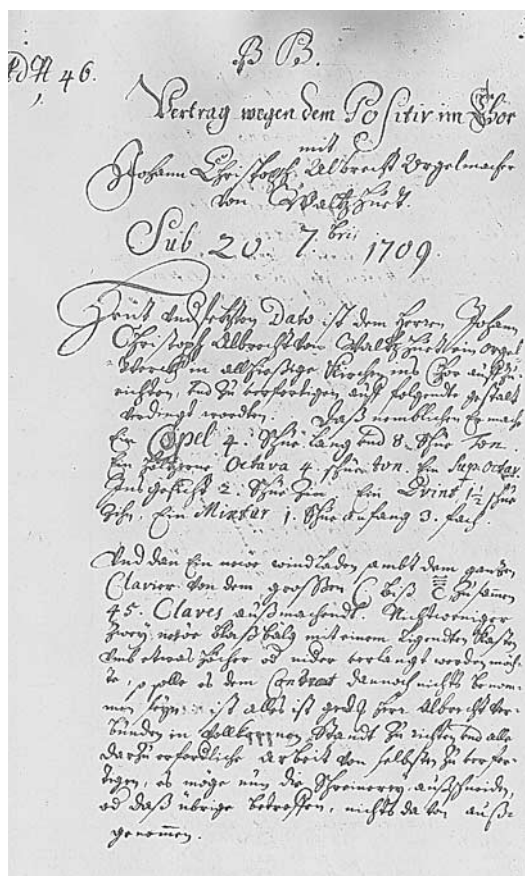 B B.
Ad N 46.
Vertrag wegen dem Positiv im Chor
mit
Johann Christoph Albrecht Orgelmacher
von Waltzhuet.
Sub. 20 7.bris 1709.
Heüt vnd setzten Dato ist dem Herren Johann
Christoph Albrecht von Waltzhuet ein Orgel
Werck in allhießige Kirchen ins Chor auffzu-
richten, vnd zu verfertigen auff folgende gestalt
verdingt worden. Daß nemblichen Er mache
Ein Copel 4. Schue lang vnd 8. Schue Ton.
Ein höltzerne Octava 4. schue ton. Ein Sup.octav
Ins gesicht 2. Schue Zin. Ein Quint 1½ schue
Zihn. Ein Mixtur 1. Schue anfang 3. fach.
Vnd dan Ein neüe windladen, sambt dem gantzen
Clavier von dem grossen C. biß c zusamen
45. Claves außmachendt. Nicht weniger
Zwey neüe Blaßbälg mit einem ligendten Kasten
umb etwas höcher od nider verlangt werden möch-
te, so solle es dem Contract dannoch nichts benom-
men seyn. ist alles ist Herr Albrecht ver-
bunden in Vollkommen Standt zu richten vnd alle
darzu erfordliche arbeit von selbsten zu verfer-
tigen, es möge nun die Schreinerey, außschneiden,
od daß übrige betreffen, nichts da von auß-
genommen.